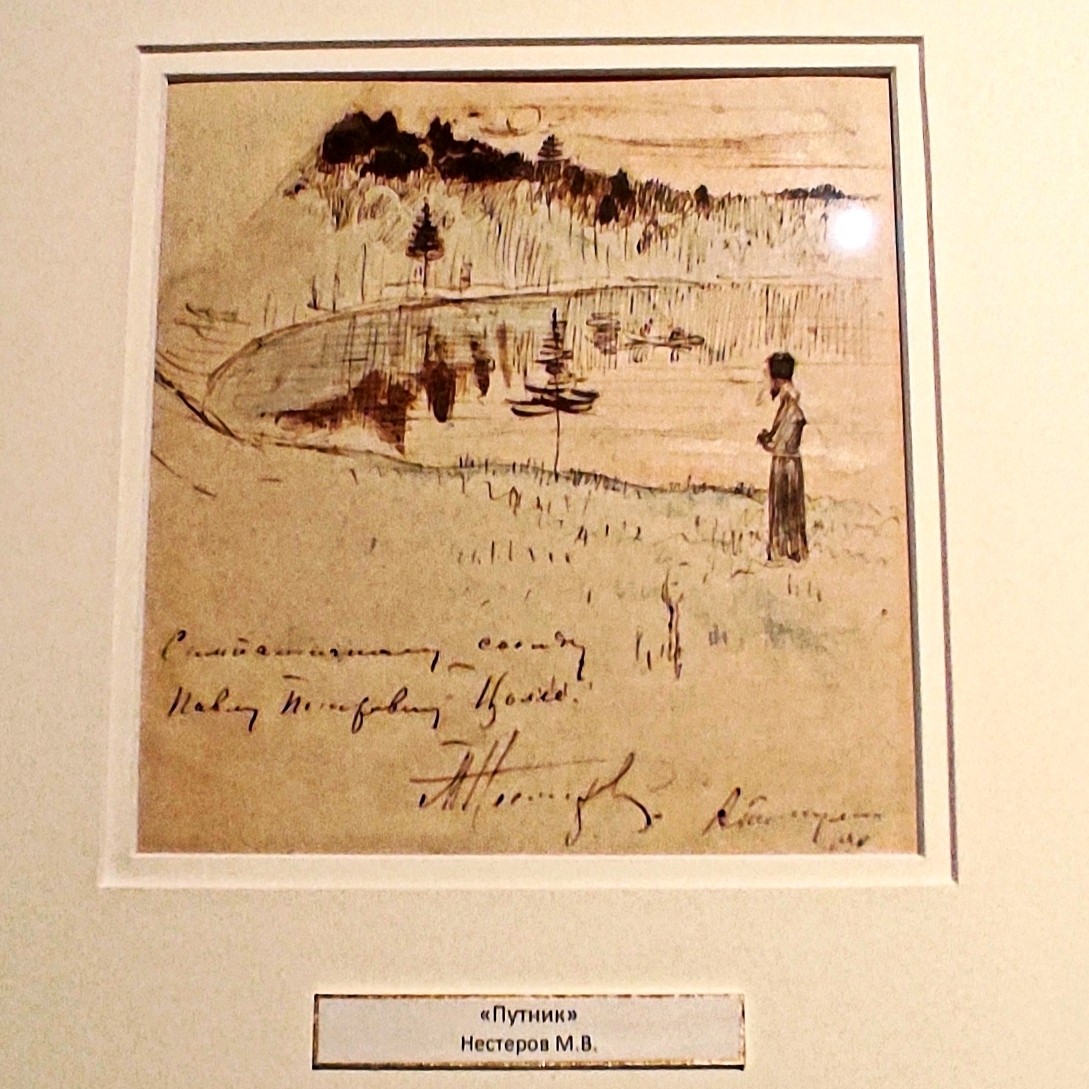 Симпатичному соседу
Павлу Петровичу
М Нестеров
«Путник»
Нестеров М.В.